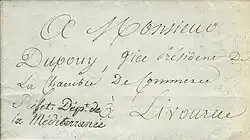 A Monsieur
Dupouy, Vice Président de
La Chambre de Commerce
à
Livourne
Dépt. de
la Méditerranée